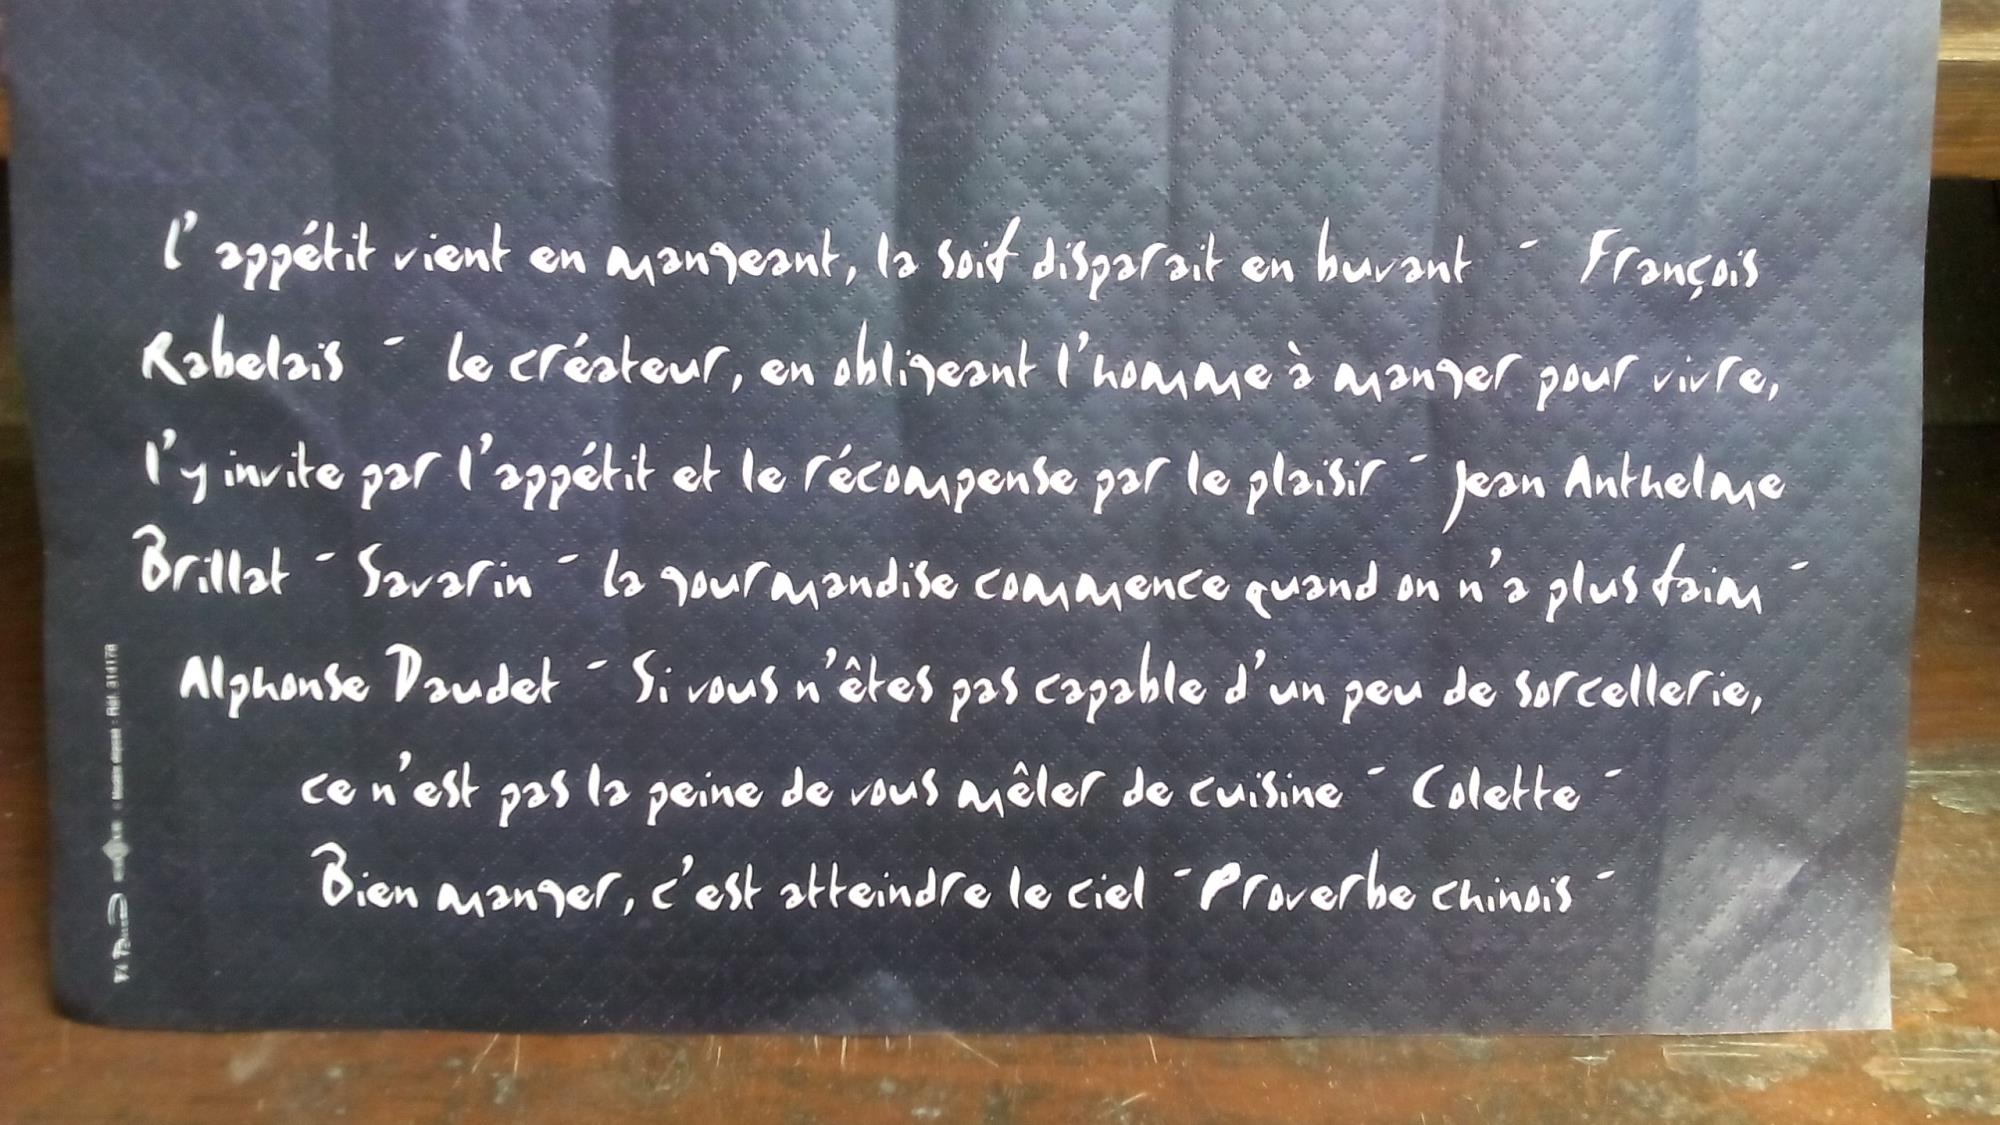 l'appétit vient en mangeant, la soif disparait en buvant - François
Rabelais - le créateur, en obligeant l'homme à manger pour vivre,
l'y invite par l'appétit et le récompense par le plaisir - Jean Anthelme
Brillat - Savarin - la gourmandise commence quand on n'a plus faim -
Alphonse Daudet - Si vous n'êtes pas capable d'un peu de sorcellerie,
ce n'est pas la peine de vous mêler de cuisine - Colette -
Bien manger, c'est atteindre le ciel - Proverbe chinois -
Modèle déposé - Réf. 314178